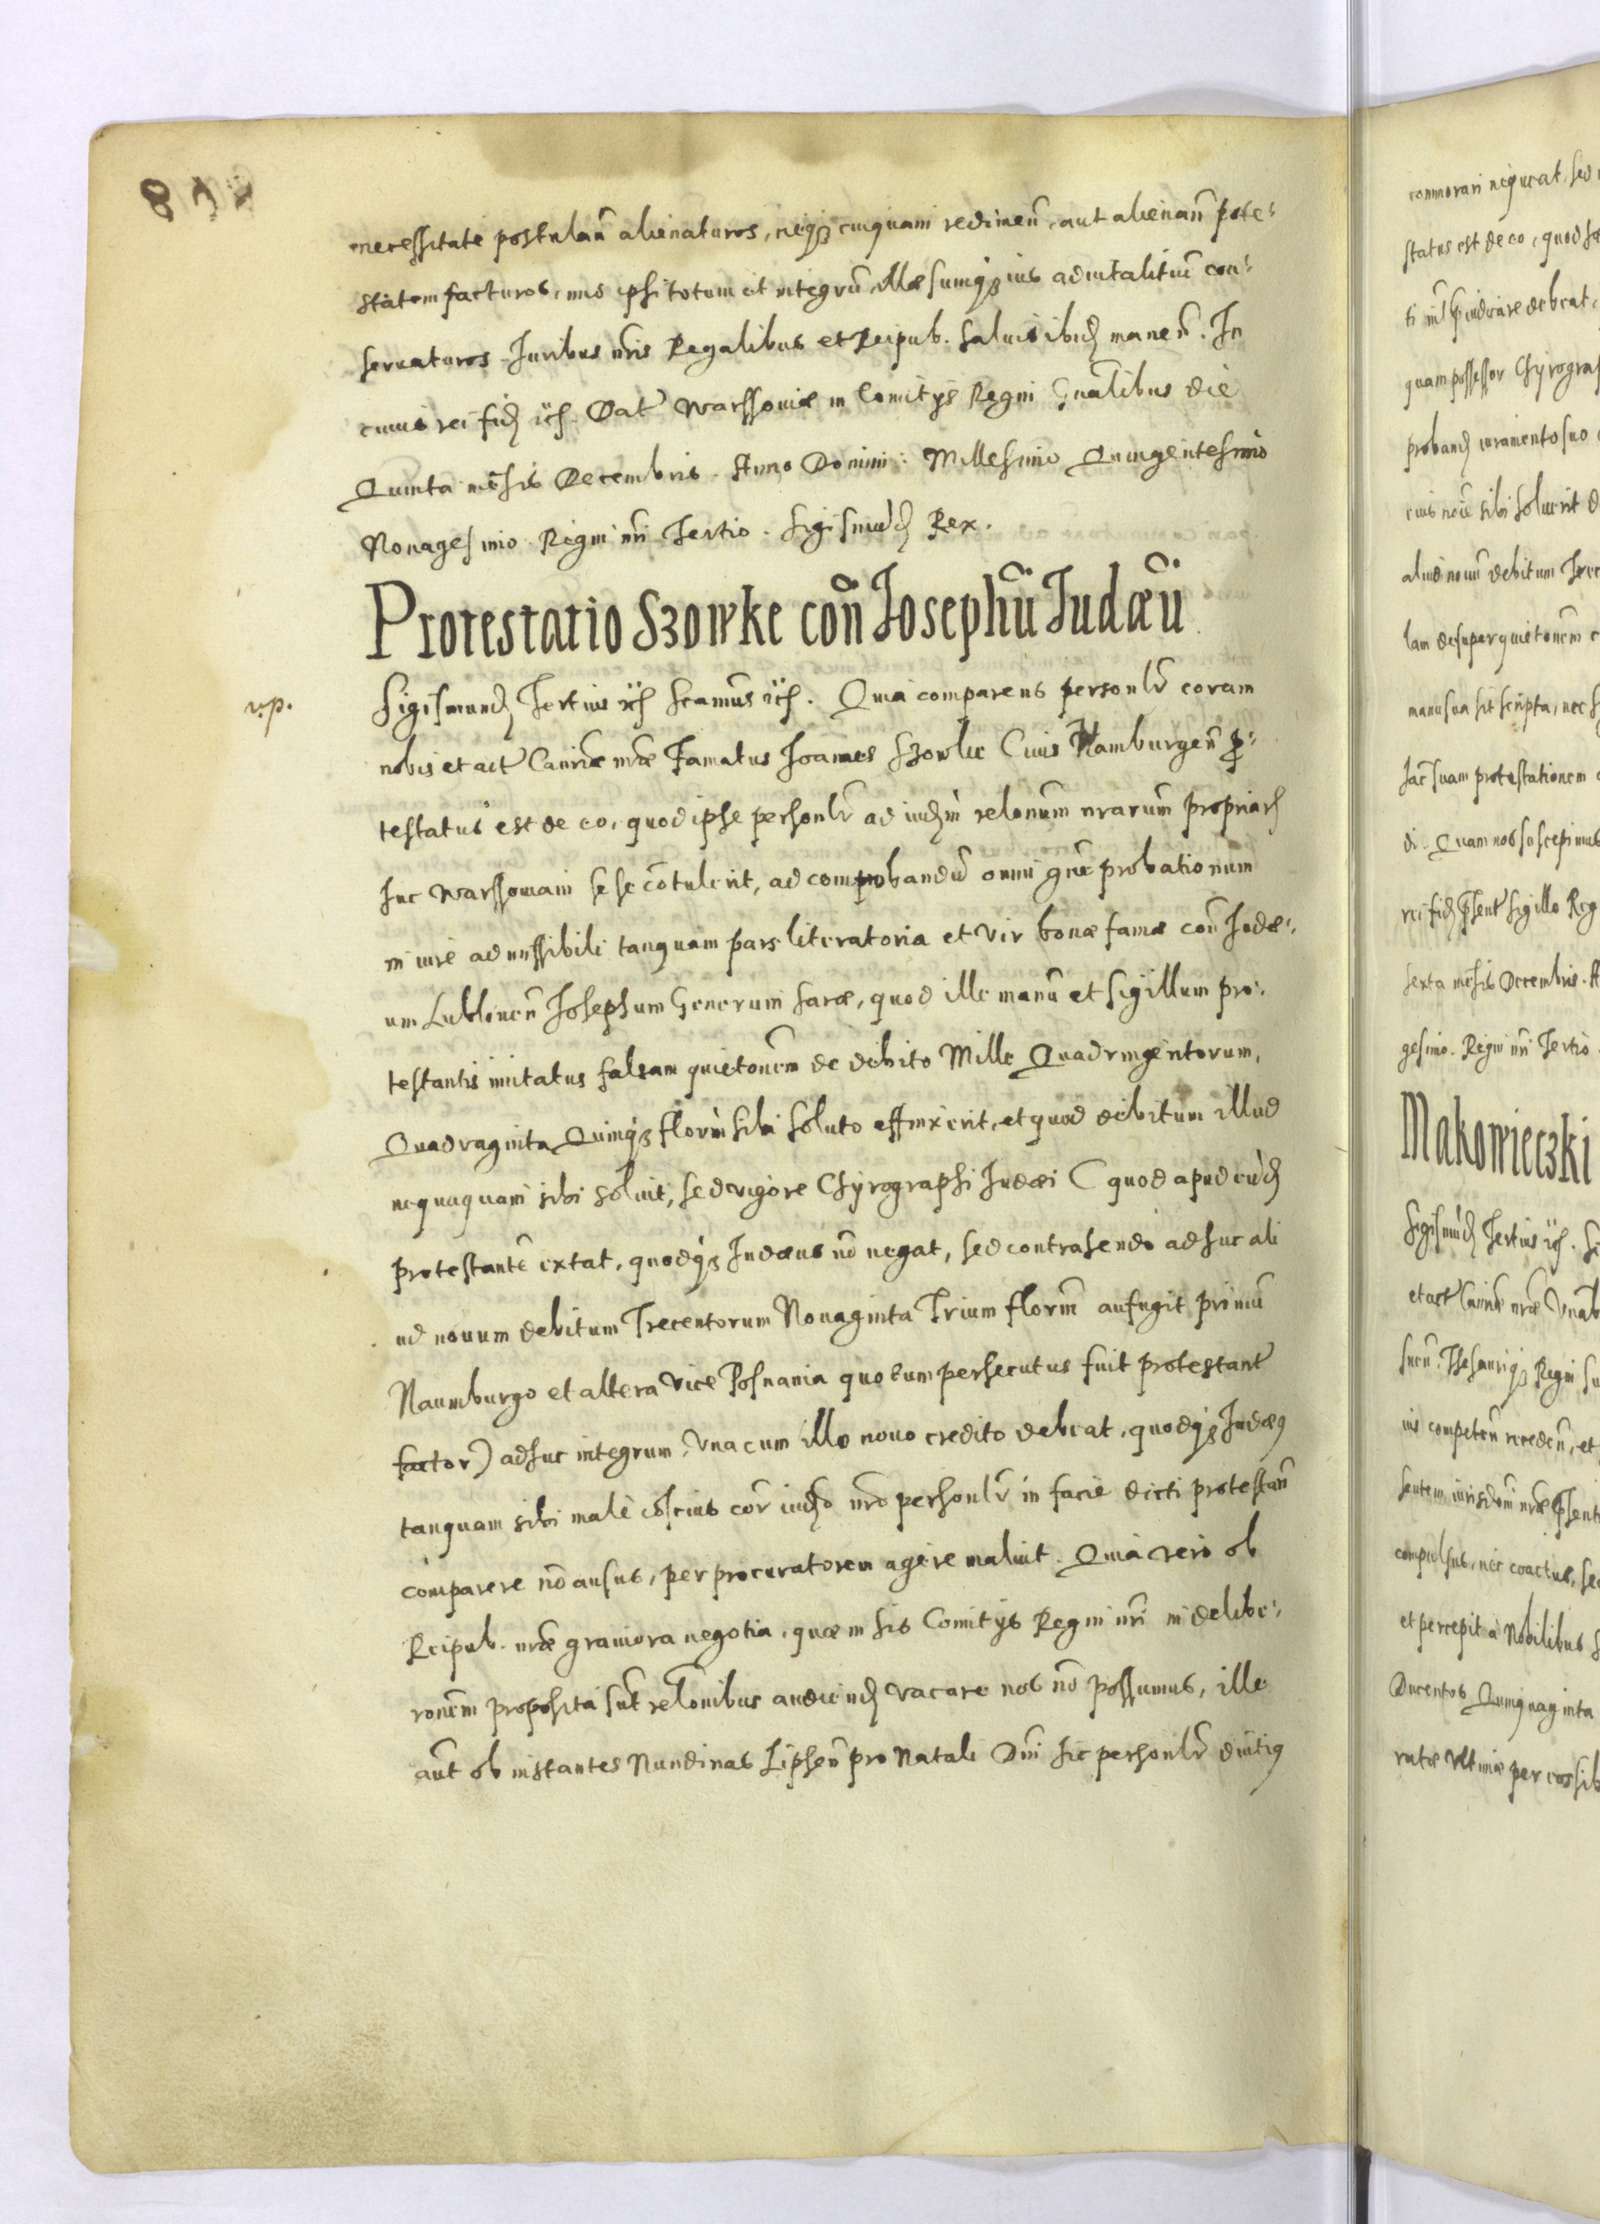 necessitate postulan̄ alienaturos, neq3 cuiquam redimen̄, aut alienan̄ pote-
statem facturos, imo ipsi totum et integrū illæsumq3 ius aduitalitiū con-
seruaturos. Iuribus nr̄is Regalibus et Reipub. saluis ibid manen̄. In
cuius rei fid etc. Dat Warssouiæ in Comitijs Regni Gn̄alibus die
Quinta mēsis Decembris. Anno Domini: Millesimo Quingentesimo
Nonagesimo. Regni nr̄i Tertio. Sigismūd Rex.
Protestatio Szowke con̄ Iosephū Iudæū
v.p.
Sigismund Tertius etc. scamus etc. Quia comparens personlr coram
nobis et act Cancriæ nr̄æ Famatus Ioannes Szowke Ciuis Namburgen̄ p-
testatus est de eo, quod ipse personlr ad iudm relonum nrarum propriarum
huc Warssouiam sese cōtulerit, ad comprobandū omni gn̄e probationum
in iure admissibili tanquam pars literatoria et vir bonæ famæ con̄ Iudæ-
um Lublinen̄ Iosephum Generum Saræ, quod ille manū et sigillum pro-
testantis imitatus falsam quietonem de debito Mille Quadringentorum,
Quadraginta Quinq3 floren̄ sibi soluto effinxerit, et quod debitum illud
nequaquam sibi soluit, sed vigore Chyrographi Iudæi ( quod apud eūd
protestantē extat, quodq3 Iudæus nō negat, sed contrahendo adhuc ali
ud nouum debitum Trecentorum Nonaginta Trium floren̄ aufugit primū
Naumburgo et altera vice Posnania quo eum persecutus fuit protestant
factor) adhuc integrum, vna cum illo nouo credito debeat, quodq3 Iudæus
tanquam sibi malè cōscius cor̄ iudo nr̄o personlr in facie dicti protestan̄
comparere nō ausus, per procuratorem agere maluit. Quia vero ob
Reipub. nr̄æ grauiora negotia, quæ in his Comitijs Regni nr̄i in delibe-
ronem proposita sunt relonibus audiend vacare nos nō possumus, ille
aut̄ ob instantes Nundinas Lipsen̄ pro Natali Dn̄i hic personlr diutius
commorari nequeat, sed
status est de eo, quod
quam possessor Chyrograp
proband iuramento suo
aliud nouū debitum Trec
lam desuper quietonem
manu sua sit scripta, nec
hac suam protestationem
di. Quam nos suscepimus
rei fid pn̄sent sigillo Reg
sexta mēsis Decembris. A
gesimo. Regni nr̄i Tertio.
Makowieczki
Sigismūd Tertius etc. Si
et act Cancriæ nr̄æ
Thesauriq3 Regni su
ius competen̄ receden̄, et
compulsus, nec coactus, se
et percepit à Nobilibus
Ducentos Quinquaginta
ratæ vltimæ per eos sib